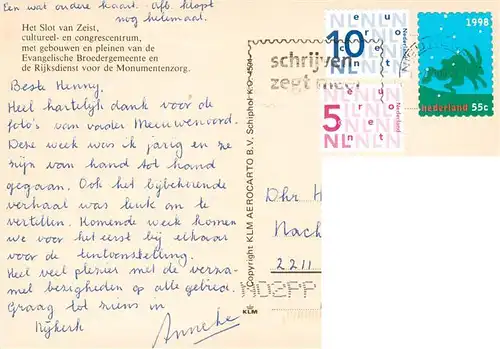 Een wat oudere kaart. afb. klopt
nog helemaal.
Het Slot van Zeist,
cultureel- en congrescentrum,
met gebouwen en pleinen van de
Evangelische Broedergemeente en
de Rijksdienst voor de Monumentenzorg.
Beste Henny.
Heel hartelijk dank voor de
foto's van vader Meeuwenoord.
Deze week was ik jarig en ze
zijn van hand tot hand
gegaan. Ook het bijbehorende
verhaal was leuk om te
vertellen. Komende week komen
we voor het eerst bij elkaar
voor de tentoonstelling.
Heel veel plezier met de verza-
mel bezigheden op alle gebied.
Graag tot ziens in
Nijkerk
Anneke
Copyright KLM AEROCARTO B.V. Schiphol K.O. 4591
KLM
schrijven
zegt meer
10
euro
cent
Nederland
5
euro
cent
Nederland
1998
nederland 55c
Dhr H
Nach
2211